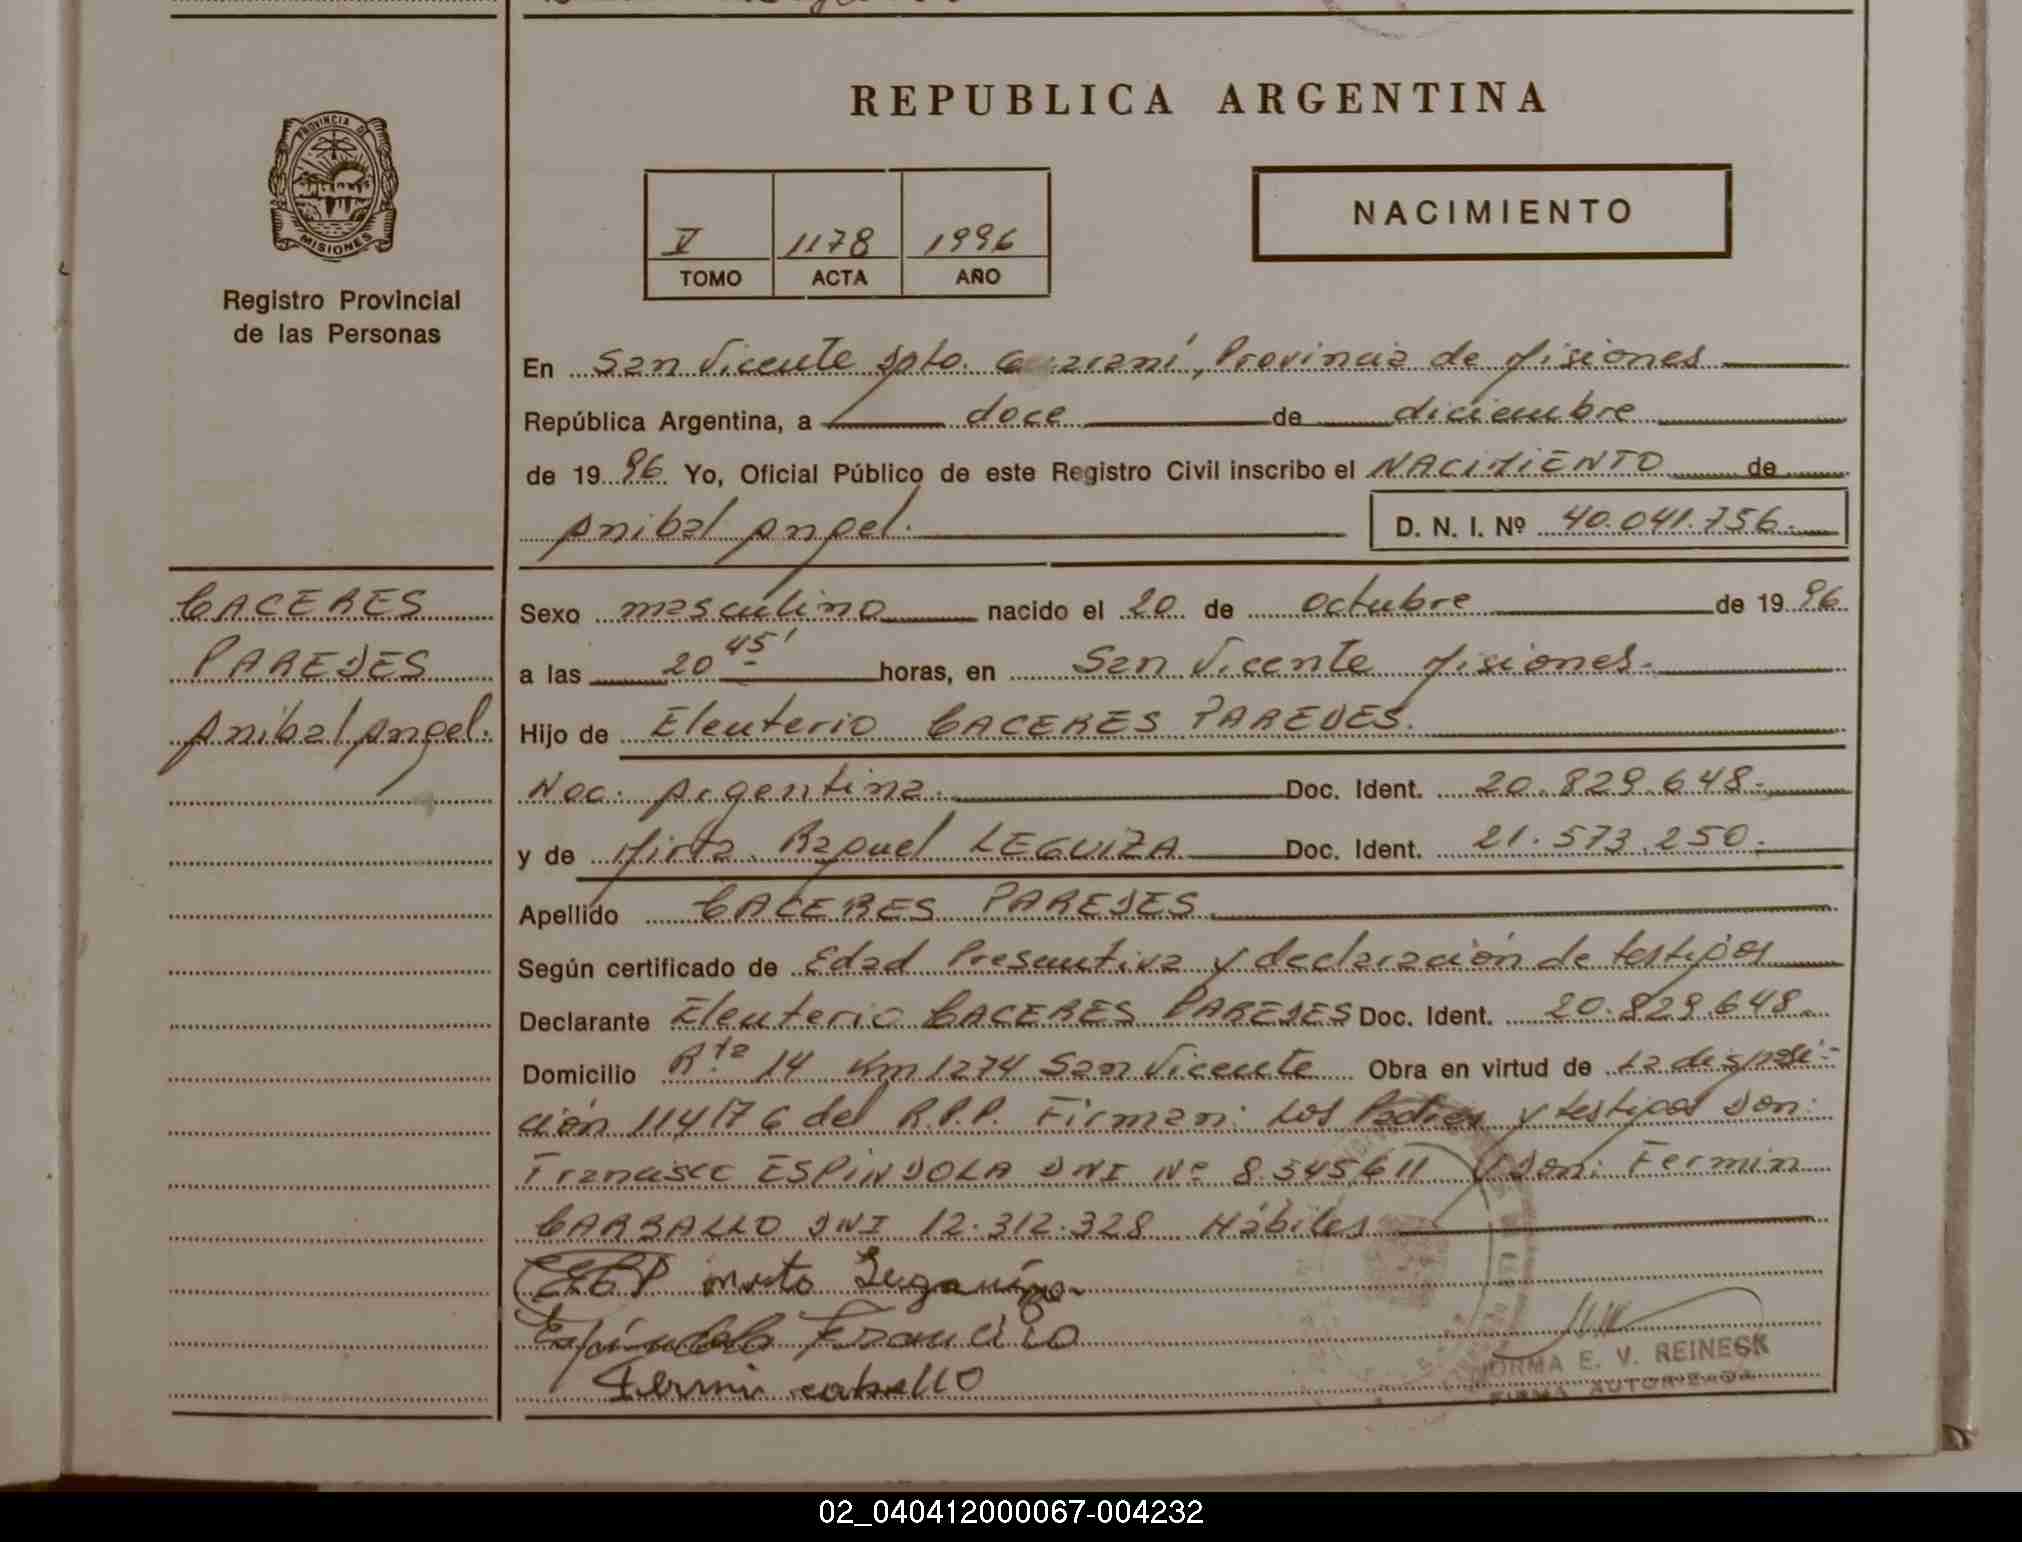 REPUBLICA ARGENTINA
PROVINCIA D
MISIONES
Registro Provincial
de las Personas
V 1178 1996
TOMO ACTA AÑO
NACIMIENTO
En San Vicente Dpto. Guaraní, Provincia de Misiones
República Argentina, a doce de diciembre
de 19 96 Yo, Oficial Público de este Registro Civil inscribo el NACIMIENTO de
Anibal Angel. D. N. I. Nº 40.041.756.-
CACERES
PAREDES
Anibal Angel.
Sexo masculino nacido el 20 de octubre de 19 96
a las 20 45' horas, en San Vicente Misiones.
Hijo de Eleuterio CACERES PAREDES.
Nac. Argentina. Doc. Ident. 20.829.648.-
y de Mirta Raquel LEGUIZA Doc. Ident. 21.573.250.-
Apellido CACERES PAREDES
Según certificado de Edad Presuntiva y declaración de testigos
Declarante Eleuterio CACERES PAREDES Doc. Ident. 20.829.648.
Domicilio Rta 14 Km 1274 San Vicente Obra en virtud de La disposi-
ción 114/76 del R.P.P. Firman: Los Padres y testigos Don:
Francisco ESPINDOLA DNI Nº 8.545.611 y Don: Fermin
CARBALLO DNI 12.312.328 Hábiles
Francisco
Fermin
NORMA E. V. REINECK
FIRMA AUTORIZADA
02_040412000067-004232